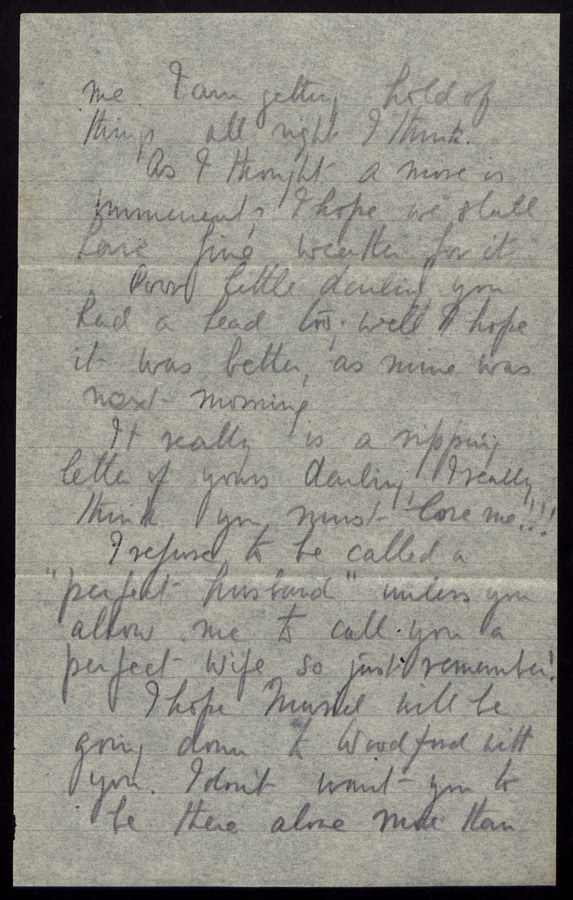 me. I am getting hold of
things all right I think.
As I thought a move is
imminent, I hope we shall
have fine weather for it
Poor little darling you
had a head too; well I hope
it was better, as mine was
next morning
It really is a ripping
letter of yours darling, I really
think you must "love me"!!!
I refuse to be called a
"perfect husband" unless you
allow me to call you a
perfect wife so just remember!
I hope Muriel will be
going down to Woodford with
you. I don't want you to
be there alone more than